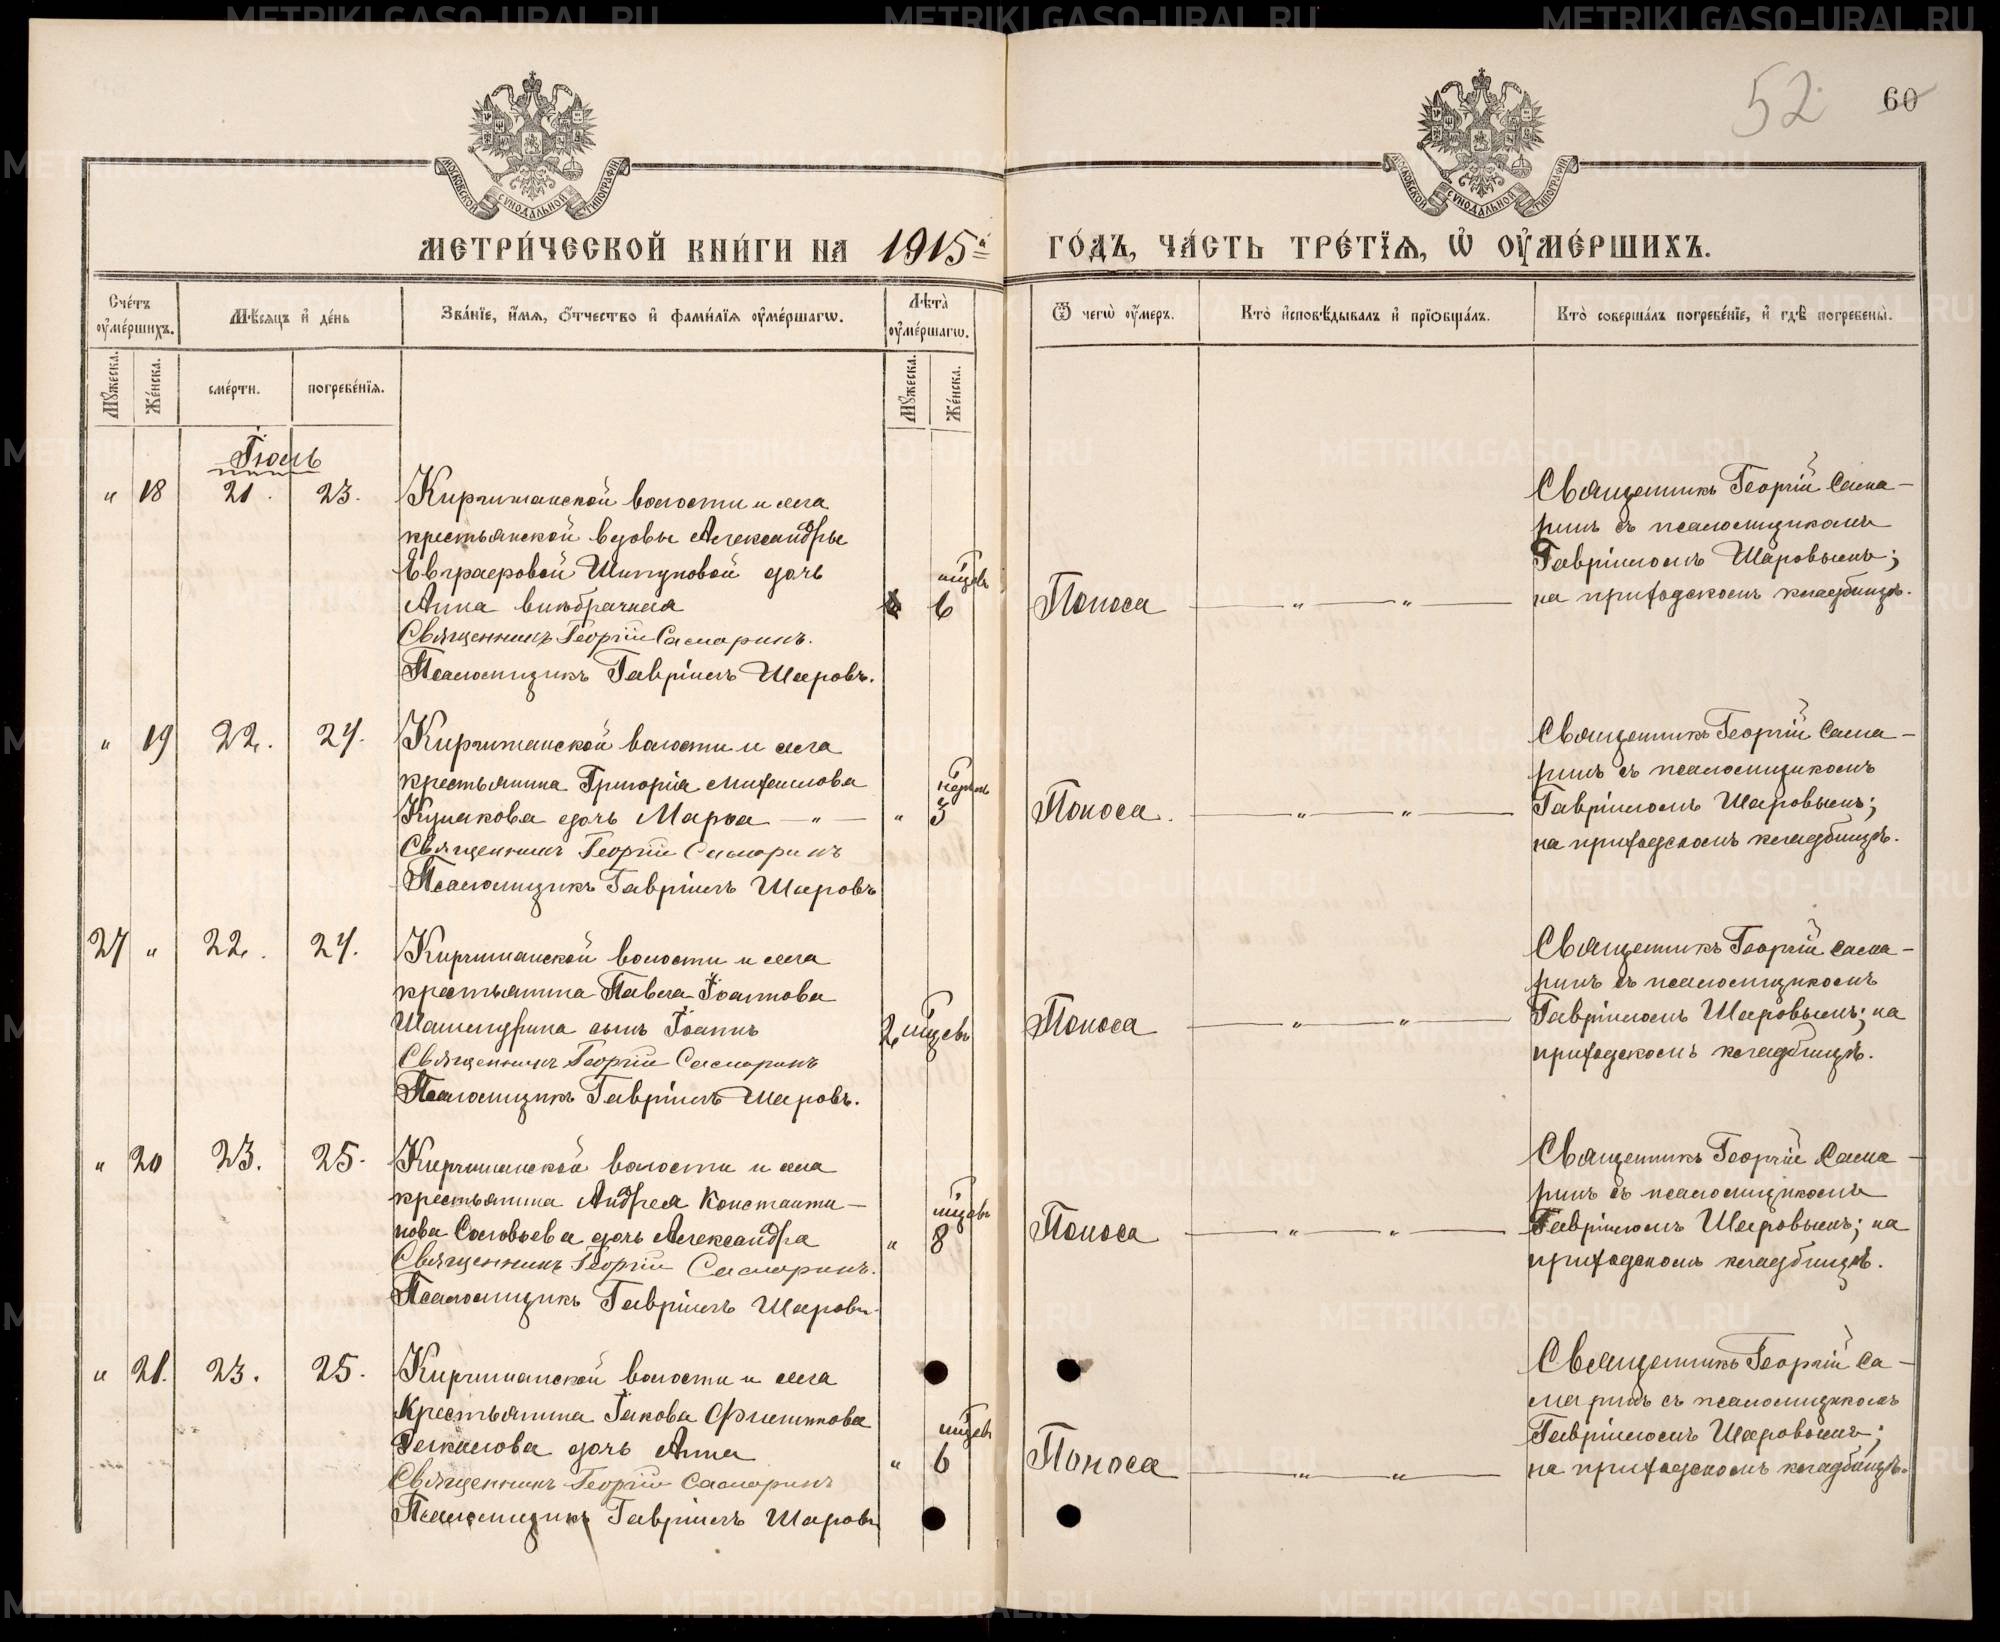 52
60
МОСКОВСКОЙ СѴНОДАЛЬНОЙ ТИПОГРАФІИ
МОСКОВСКОЙ СѴНОДАЛЬНОЙ ТИПОГРАФІИ
МЕТРИ́ЧЕСКОЙ КНИ́ГИ НА 1915 й ГО́ДЪ, ЧА́СТЬ ТРЕ́ТІЯ, Ѡ҆ ОУ҆МЕ́РШИХЪ.
Сче́тъ оу҆ме́ршихъ.
Мѣ́сяцъ и҆ де́нь
Зва́ніе, и҆́мя, ѻ҆́тчество и҆ фами́лія оу҆ме́ршагѡ.
Лѣ́та оу҆ме́ршагѡ.
Ѿ чегѡ̀ оу҆́меръ.
Кто̀ и҆сповѣ́дывалъ и҆ прїѡбща́лъ.
Кто̀ соверша́лъ погребе́ніе, и҆ гдѣ̀ погребены̀.
Мꙋ́жеска.
Же́нска.
сме́рти.
погребе́нія.
Мꙋ́жеска.
Же́нска.
Іюль
" 18 21. 23.
Киргишанской волости и села
крестьянской вдовы Александры
Евграфовой Шипуновой дочь
Анна внѣбрачная
Священникъ Георгій Самаринъ.
Псаломщикъ Гавріилъ Шаровъ.
мѣсяцевъ
6
Поноса
— " — " —
Священникъ Георгій Сама-
ринъ съ псаломщикомъ
Гавріиломъ Шаровымъ;
на приходскомъ кладбищѣ.
" 19 22. 24.
Киргишанской волости и села
крестьянина Григорія Михаилова
Кулакова дочь Марѳа — " —
Священникъ Георгій Самаринъ
Псаломщикъ Гавріилъ Шаровъ
"
3
Поноса.
— " — " —
Священникъ Георгій Сама-
ринъ съ псаломщикомъ
Гавріиломъ Шаровымъ;
на приходскомъ кладбищѣ.
27 " 22. 24.
Киргишанской волости и села
крестьянина Павла Іоаннова
сынъ Іоаннъ
Священникъ Георгій Самаринъ
Псаломщикъ Гавріилъ Шаровъ.
2
Поноса
— " — " —
Священникъ Георгій Сама-
ринъ съ псаломщикомъ
Гавріиломъ Шаровымъ; на
приходскомъ кладбищѣ.
" 20 23. 25.
Киргишанской волости и села
крестьянина Андрея Константи-
нова Соловьева дочь Александра
Священникъ Георгій Самаринъ.
Псаломщикъ Гавріилъ Шаровъ
"
8
Поноса
— " — " —
Священникъ Георгій Сама-
ринъ съ псаломщикомъ
Гавріиломъ Шаровымъ; на
приходскомъ кладбищѣ.
" 21. 23. 25.
Киргишанской волости и села
Крестьянина Іакова Филиппова
дочь Анна
Священникъ Георгій Самаринъ
Псаломщикъ Гавріилъ Шаровъ
"
6
Поноса
— " — " —
Священникъ Георгій Са-
маринъ съ псаломщикомъ
Гавріиломъ Шаровымъ;
на приходскомъ кладбищѣ.
METRIKI.GASO-URAL.RU